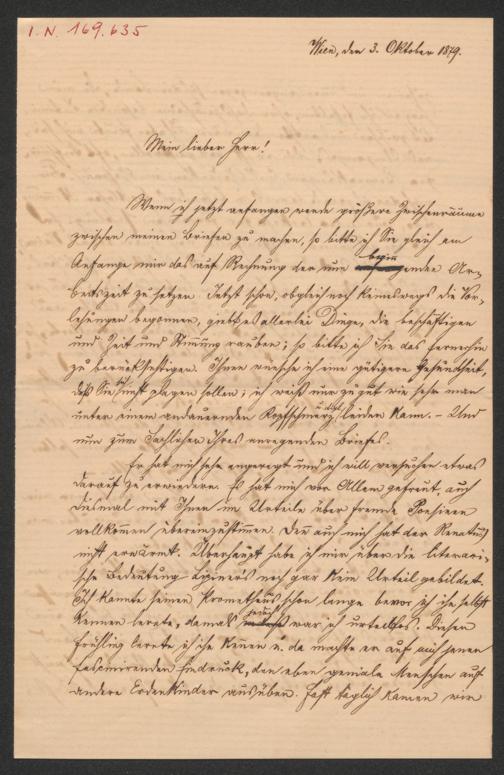 I. N. 169.635
Wien, den 3. Oktober 1879.
Mein lieber Herr!
Wenn ich jetzt anfangen werde größere Zwischenräume
zwischen meinen Briefen zu machen, so bitte ich Sie gleich am
Anfange mir das auf Rechnung der nun beginnenden Ar-
beitszeit zu setzen. Jetzt schon, obgleich noch keineswegs die Vor-
lesungen begonnen, giebt es allerlei Dinge, die beschäftigen
und Zeit und Stimmung rauben; so bitte ich Sie das fernerhin
zu berücksichtigen. Ihnen wünsche ich eine gütigere Gesundheit,
daß Sie sich nicht plagen sollen; ich weiß nur zu gut wie sehr man
unter einem andauernden Kopfschmerz leiden kann. – Und
nun zum Sachlichen Ihres anregenden Briefes.
Er hat mich sehr angeregt und ich will versuchen etwas
darauf zu erwiedern. Es hat mich vor Allem gefreut, auch
diesmal mit Ihnen im Urteile über fremde Poesieen
vollkommen übereinzustimmen. Den auch mich hat der Renatus
nicht erwärmt. Überhaupt habe ich mir über die literari-
sche Bedeutung Lipiner's noch gar kein Urteil gebildet.
Ich kannte seinen Prometheus schon lange bevor ich ihn selbst
kennen lernte, damals war ich urteillos. Diesen
Frühling lernte ich ihn kennen u. da machte er auf mich jenen
fascinirenden Eindruck, den eben geniale Menschen auf
andere Erdenkinder ausüben. Fast täglich kamen wir